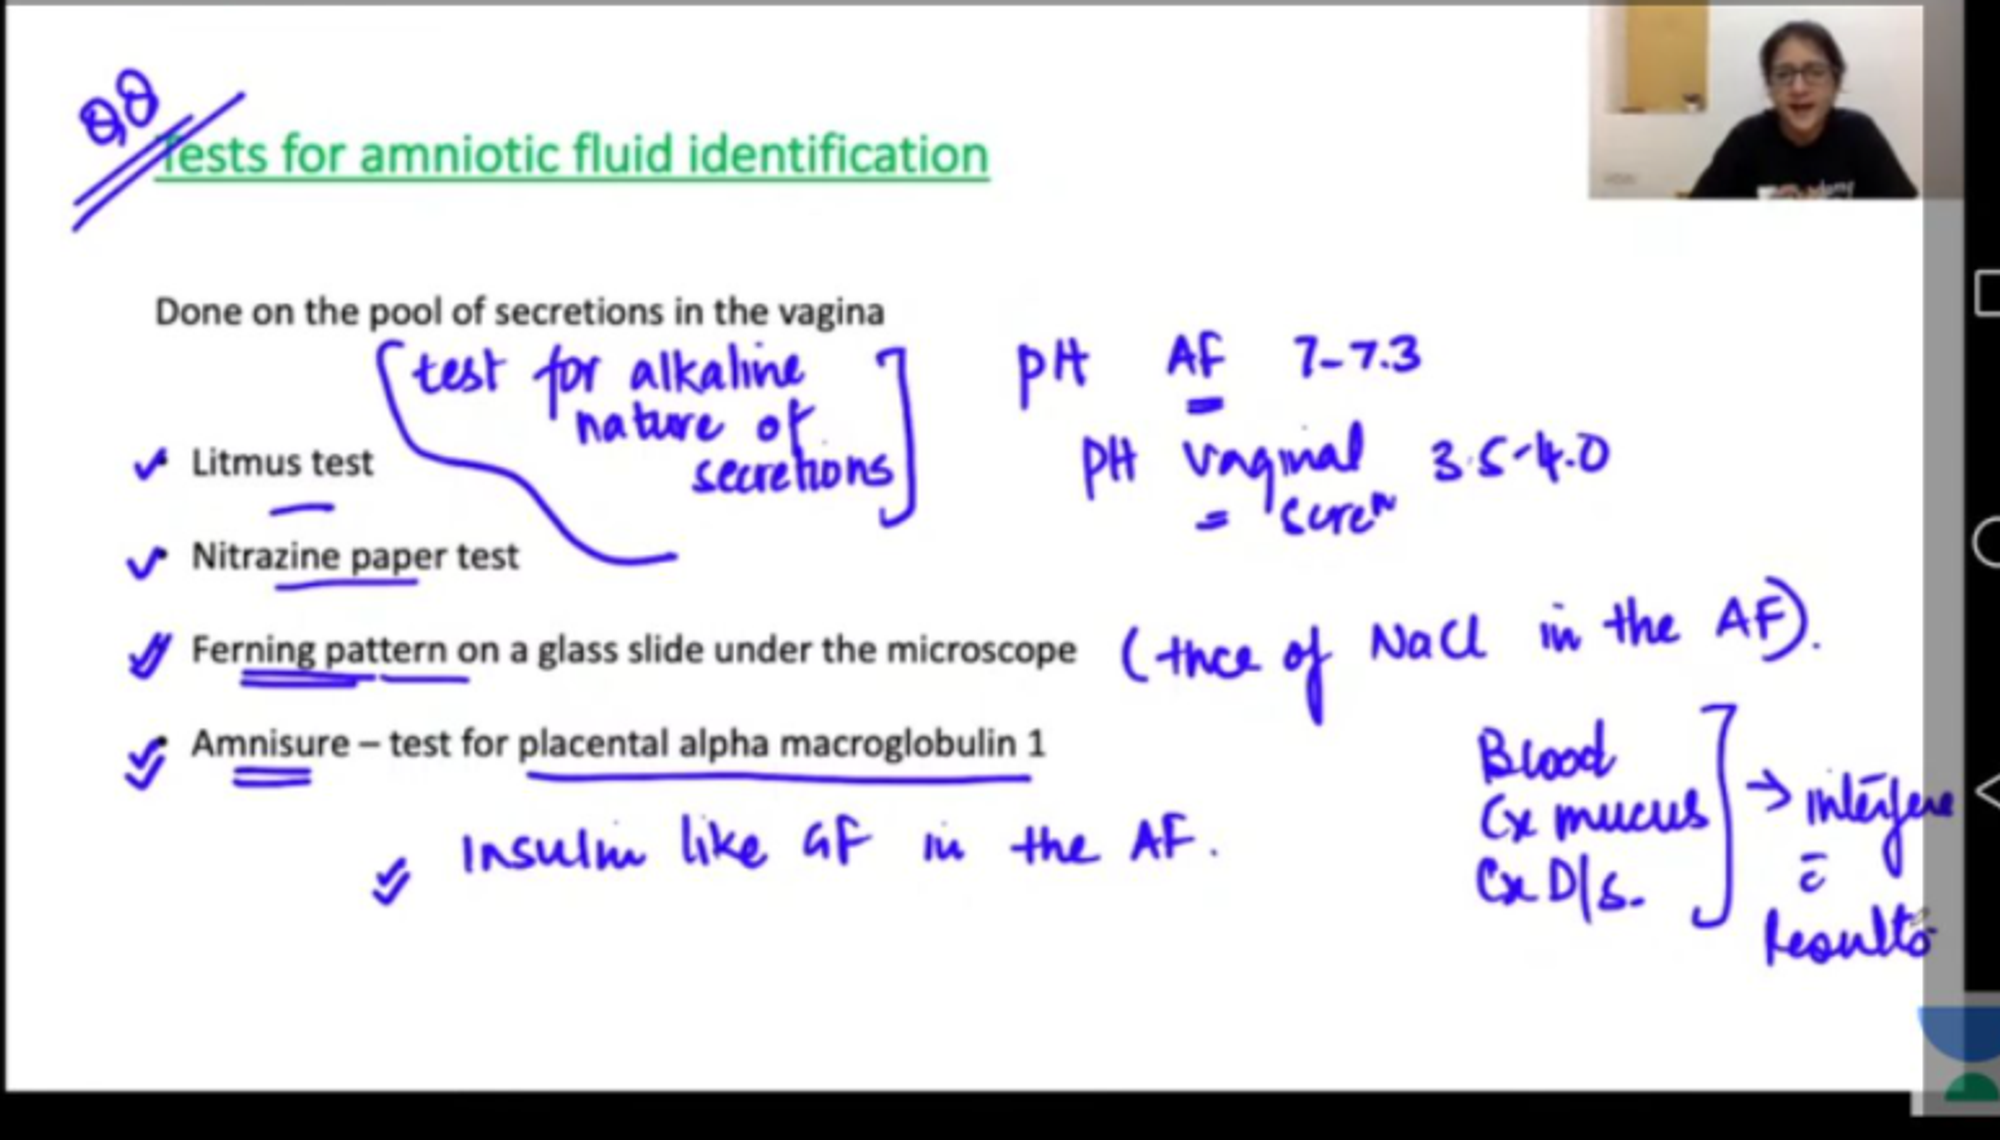 QQ
Tests for amniotic fluid identification
Done on the pool of secretions in the vagina
test for alkaline
nature of
secretions
pH AF 7-7.3
pH vaginal 3.5-4.0
• Litmus test
• Nitrazine paper test
• Ferning pattern on a glass slide under the microscope
of NaCl in the AF).
• Amnisure – test for placental alpha macroglobulin 1
Insulin like GF in the AF.
Blood
Cx mucus
Cx D/s.
→ interfere
c̄
results